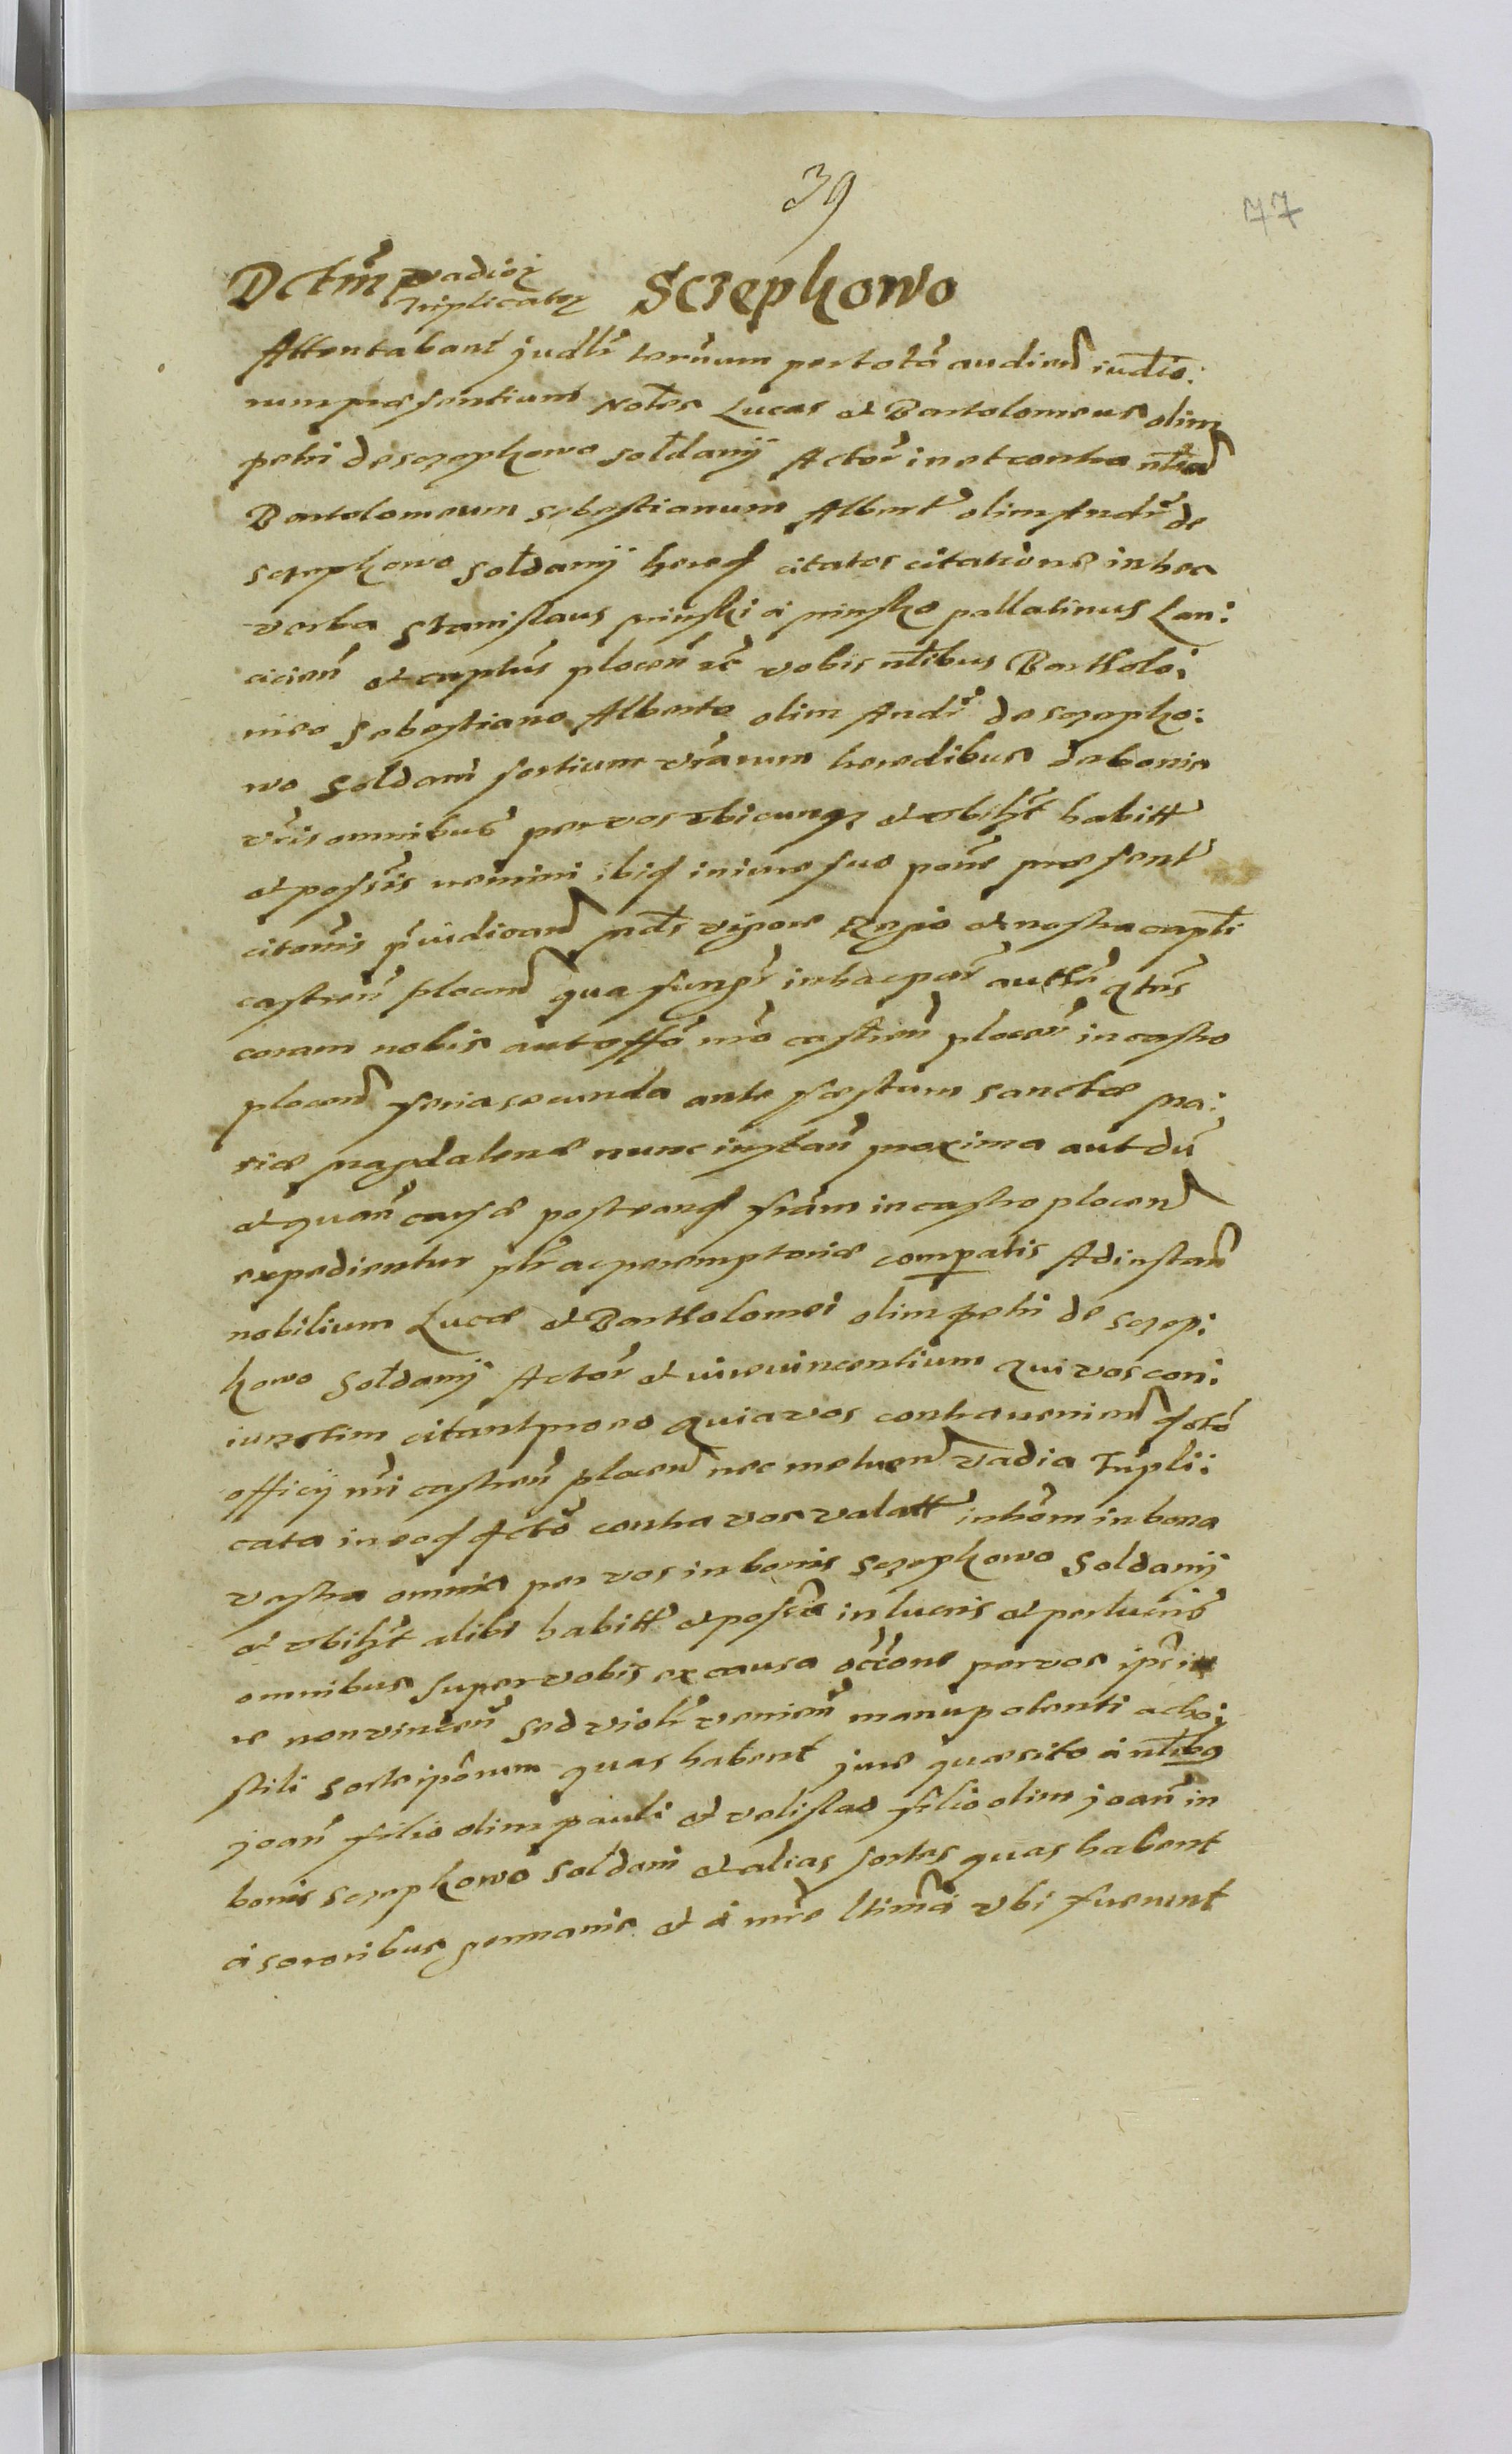 39
77
Dctm̃ vadioꝝ triplicatoꝝ Sczepkowo
Attentabant judlr̃ termum per totã audien̄ iudtio:
rum præsentium Notles Lucas et Bartolomeus olim
petri de sczepkowo soldanij Actor̃ in et contra ntles
Bartolomeum sebastianum Albert̃ olim Andr̃ de
sczepkowo soldanij hered citatos citatione in hec
verba Stanislaus minski a minsko pallatinus Lan:
cicien̄ et captus plocen̄ etc̃ vobis ntlibus Bartholo:
meo Sebastiano Alberto olim Andr̃ de sczepko:
wo Soldani sortium vr̃arum heredibus de bonis
vr̃is omnibus per vos vbicunqꝫ et vbilt̃ habitt̃
et possis̃ nemini ibiq in iure suo pone præsent̃
citaonis p̃iudicaen̄ mdt̃ vigore Regio et nostra captli
castren̄ plocen̄ qua fungr̃ in hac par̃ auttẽ qtus̃
coram nobis aut offõ nr̃o castren̄ plocen̄ in castro
plocen̄ feria secunda ante festum sanctæ Ma:
riæ magdalenæ nunc instan̄ proxima aut dũ
et quan̄ causæ posteanq̃ fiam in castro plocen̄
expedientur plr̃ ac peremptoriæ compatis Ad instan̄
nobilium Lucæ et Bartholomei olim petri de sczep:
kowo Soldanij Actor̃ et iure vincentium Qui vos con:
iunctim citant pro eo Quia vos contravenien̄ dctõ
officij nr̃i castren̄ plocen̄ nec metuen̄ vadia Tripli:
cata in eod dctõ contra vos valatt̃ in hom in bona
vestra omnia per vos in bonis Sczepkowo Soldanij
et vbilt̃ alibi habitt̃ et possa in lucris et perlucris̃
omnibus super vobis ex causa occõne per vos ipsis
re non vincen̄ sed violr̃ venien̄ manu potenti ac ho:
stili sorte ipõrum quas habent jure quæsito a ntlibꝰ
joan̄ filio olim pauli et velislao filio olim joan̄ in
bonis sczepkowo soldani et alias sortes quas habent
a sororibus germanis et a mr̃e ltima vbi fuerunt